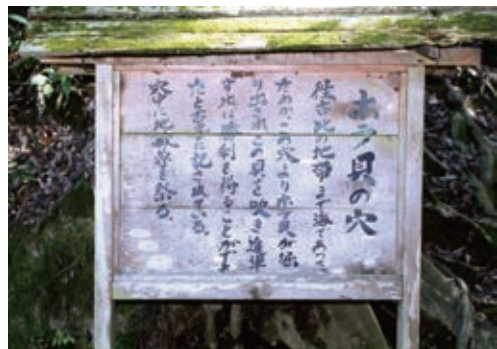 ホラ貝の穴
往古此の地帯まで海であつて、
ためかこの穴よりホラ貝が掘
り出されこの貝を吹き進軍
すれば勝利を得ることができ
たと古書に記されている。
穴中に地蔵堂を祭る。